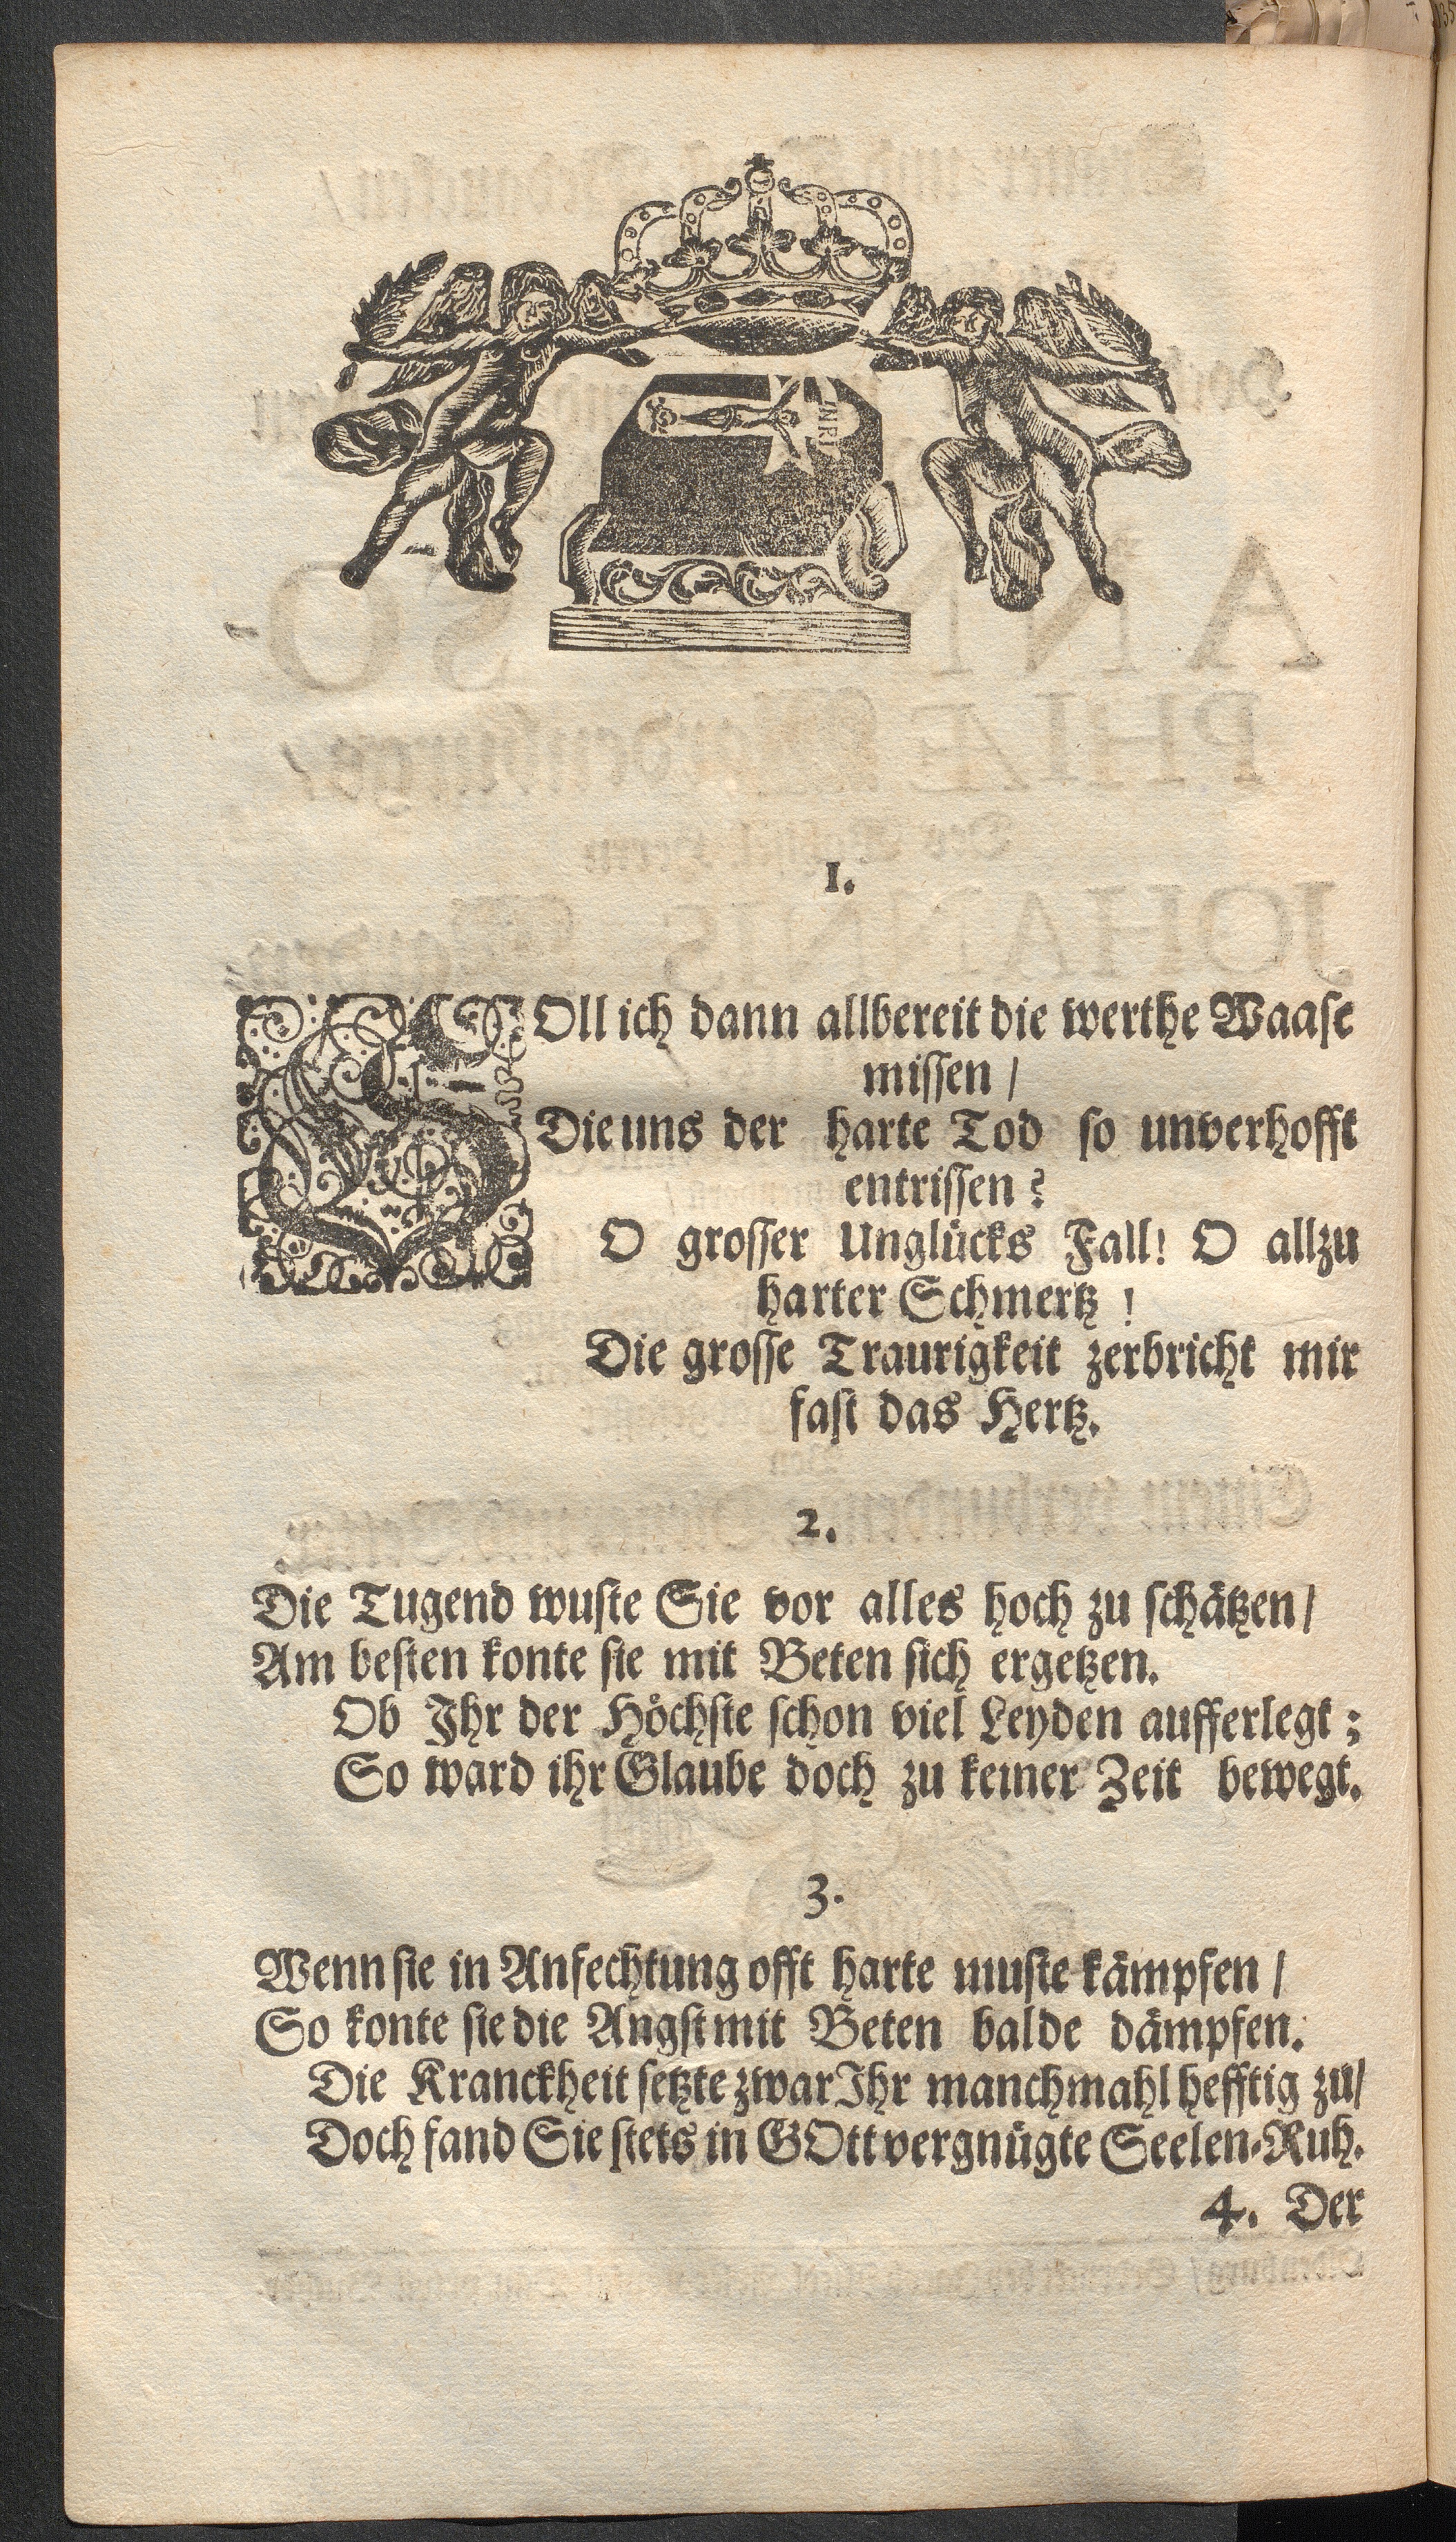 INRI
1.
SOll ich dann allbereit die werthe Waase
missen /
Die uns der harte Tod so unverhofft
entrissen?
O grosser Unglücks Fall! O allzu
harter Schmertz !
Die grosse Traurigkeit zerbricht mir
fast das Hertz.
2.
Die Tugend wuste Sie vor alles hoch zu schätzen /
Am besten konte sie mit Beten sich ergetzen.
Ob Ihr der Höchste schon viel Leyden aufferlegt ;
So ward ihr Glaube doch zu keiner Zeit bewegt.
3.
Wenn sie in Anfechtung offt harte muste kämpfen /
So konte sie die Angst mit Beten balde dämpfen.
Die Kranckheit setzte zwar Ihr manchmahl hefftig zu/
Doch fand Sie stets in GOtt vergnügte Seelen-Ruh.
4. Der